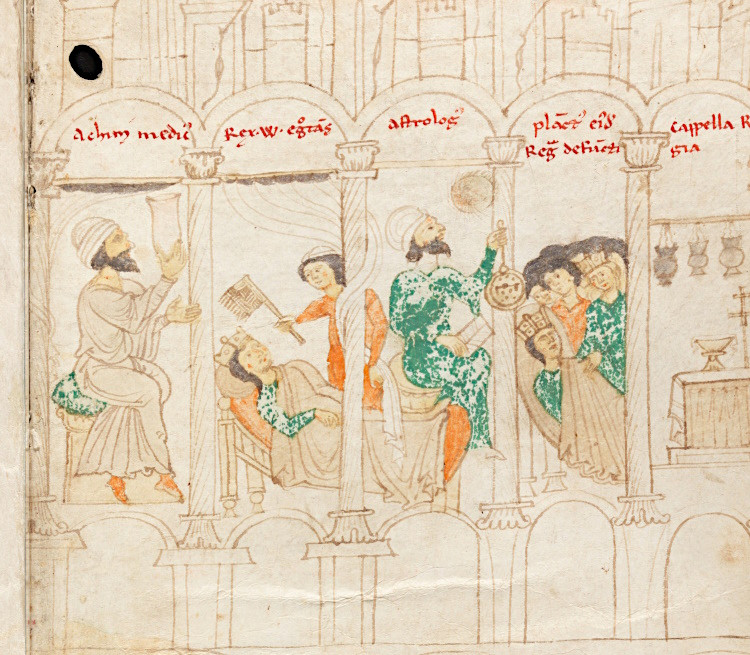 Achim medic⁹
Rex·W· egͦtās
Astrolog⁹
plāct⁹ eiꝰd
Regā defūcti
Cappella R
gia